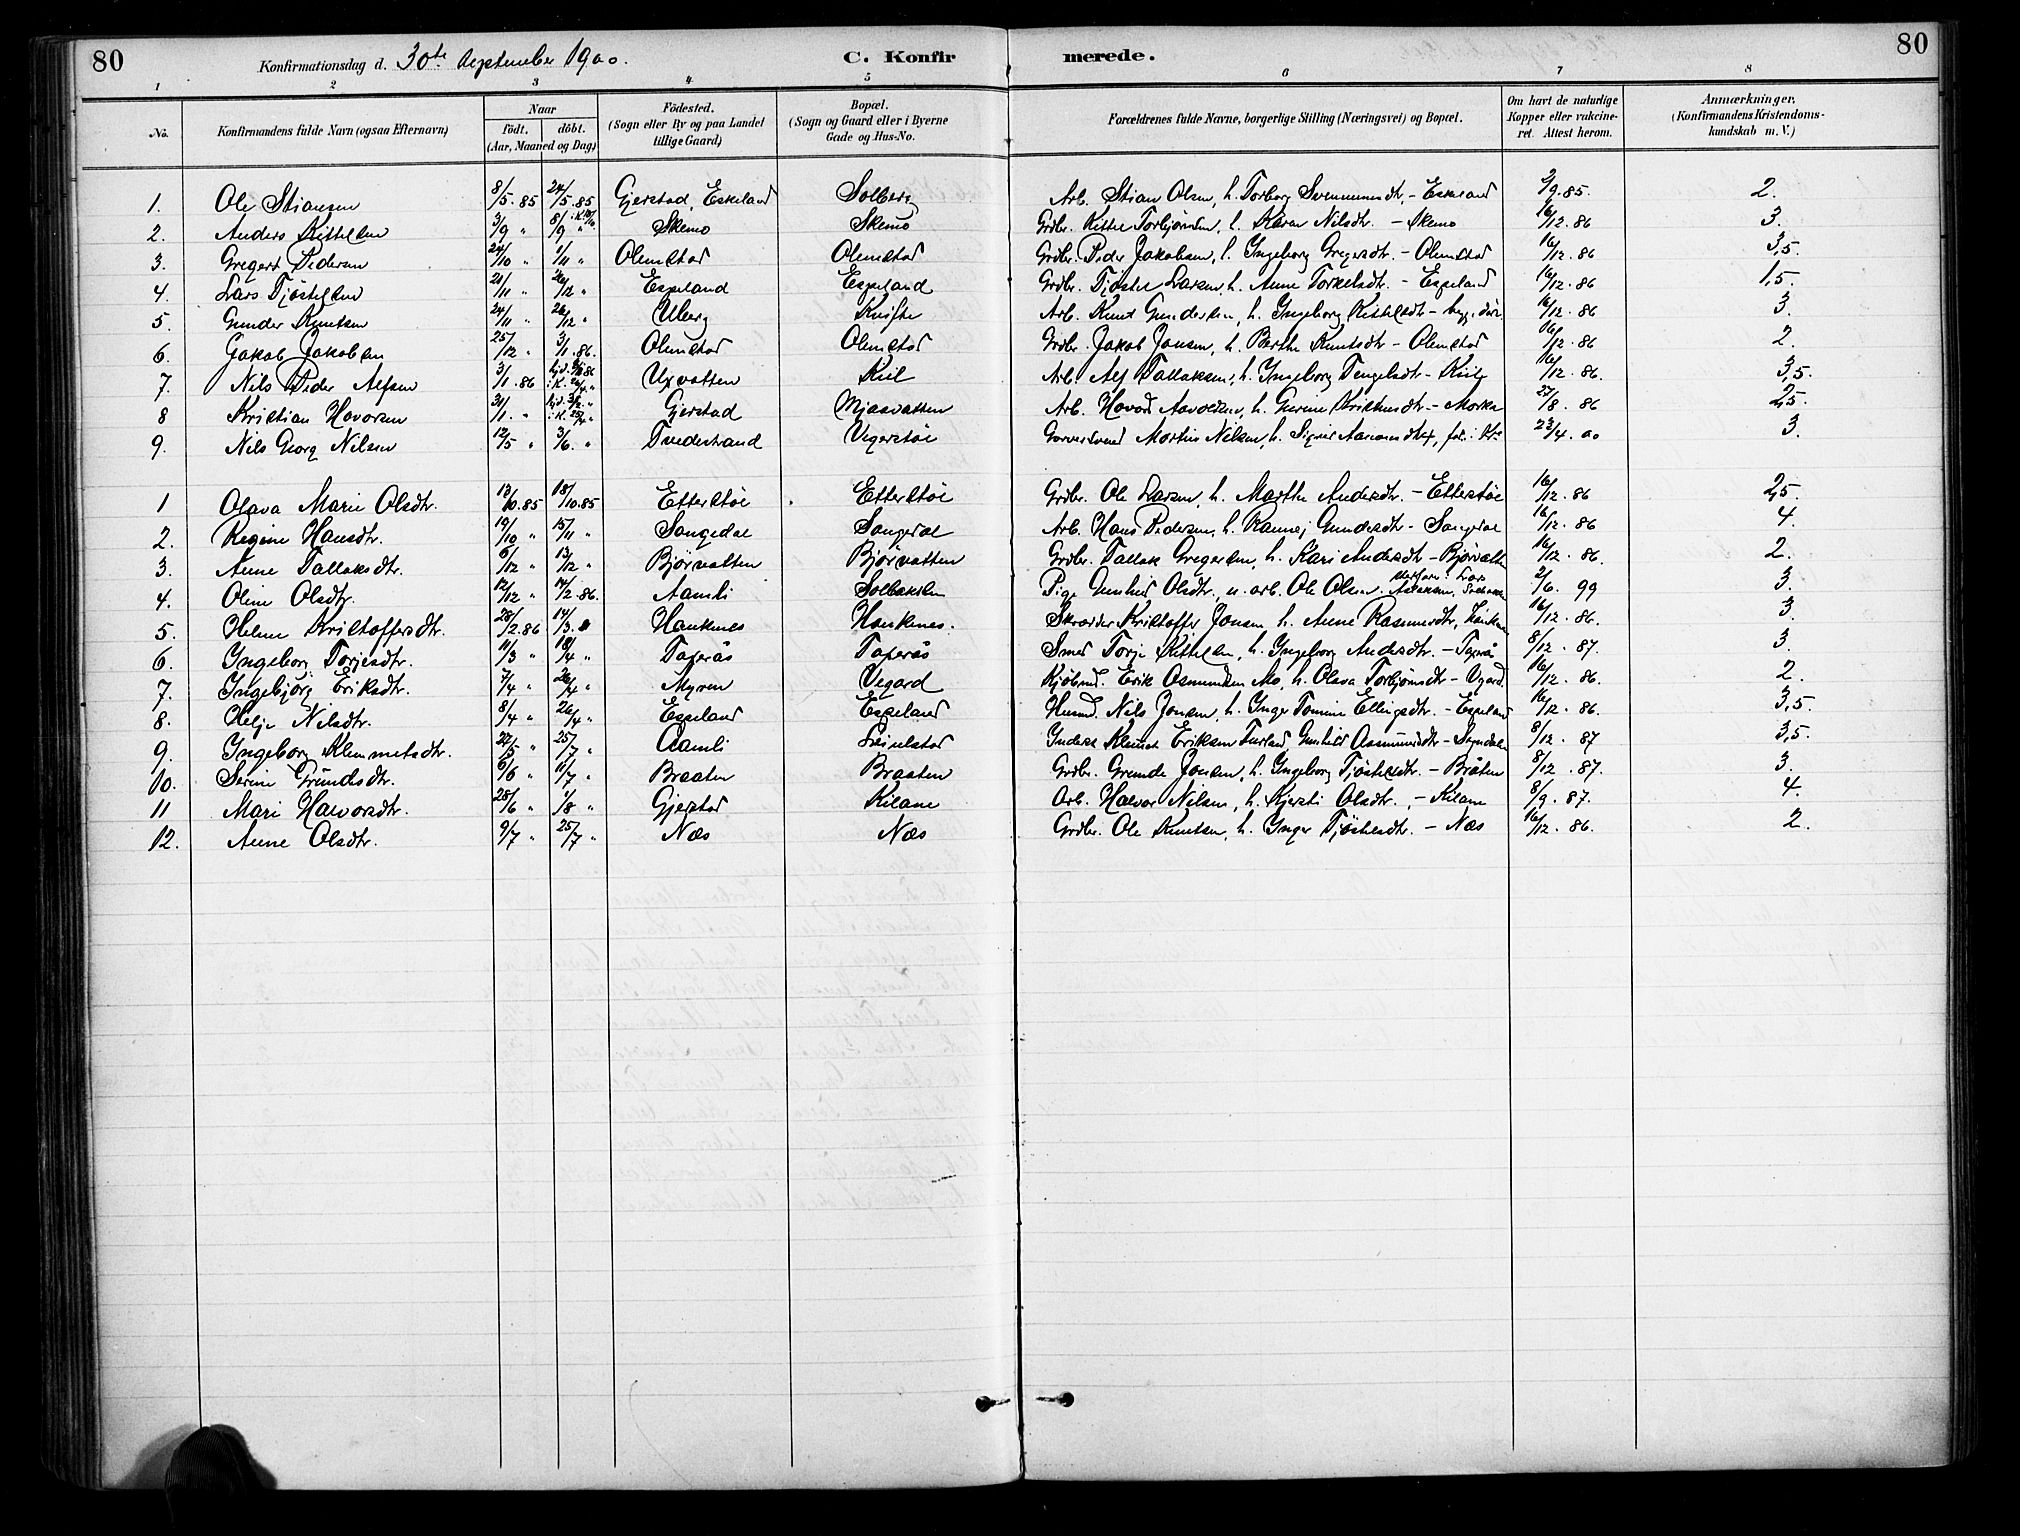 80
Konfirmationsdag d. 30te September 1900.
C. Konfirmerede.
80
1 2 3 4 5 6 7 8
No.
Konfirmandens fulde Navn (ogsaa Efternavn)
Naar
födt. döbt.
(Aar, Maaned og Dag)
Födested.
(Sogn eller By og paa Landet
tillige Gaard)
Bopæl.
(Sogn og Gaard eller i Byerne
Gade og Hus-No.
Forældrenes fulde Navne, borgerlige Stilling (Næringsvei) og Bopæl.
Om havt de naturlige
Kopper eller vakcine-
ret. Attest herom.
Anmærkninger.
(Konfirmandens Kristendoms-
kundskab m. V.)
1. Ole Stiansen 8/5.85 24/5.85 Gjerstad, Eskeland Solberg Arb. Stian Olsen, h. Torborg - Eskeland 2/9.85. 2.
2. Anders Kittelsen 3/9 " 8/9 " Skemo Skemo Grdbr. Kittel Torbjørnsen, h. Karen Nilsdtr. - Skemo 16/12.86 3.
3. Gregert Pedersen 24/10 " 1/11 " Olimstad Olimstad Grdbr. Peder Jakobsen, h. Ingeborg Gregersdtr. - Olimstad 16/12.86 3,5.
4. Lars Tjöstelsen 21/11 " 26/12 " Espeland Espeland Grdbr. Tjöstel Larsen, h. Anne Torkelsdtr. - Espeland 16/12.86 1,5.
5. Gunder Knutsen 24/11 " 26/12 " Ulberg Arb. Knud Gundersen, h. Ingeborg Kittelsdtr - 16/12.86 3.
6. Jakob Jakobsen 25/12 " 3/1.86. Olimstad Olimstad Grdbr. Jakob Jensen, h. Berthe Knutsdtr - Olimstad 16/12.86 2.
7. Nils Peder Alfsen 3/1.86 Uxvatten Kiil Arb. Alf Tallaksen, h. Ingeborg Tengelsdtr - Kiil 16/12.86. 3,5.
8 Kristian Havorsen 31/1. " Gjerstad Mjaavatten Arb. Hovod h. Gurine - Morka 27/8.86 2,5.
9. Nils Georg Nilsen 12/5 " 3/6. " Tvedestrand Vegerstöe Garversvend Martin Nilsen, h. Signe 23/4.00 3.
1 Olava Marie Olsdtr. 12/10.85 18/10.85 Etterstöe Etterstöe Grdbr. Ole Larsen, h. Marthe Andersdtr. - Etterstöe 16/12.86 2,5.
2. Regine Hansdtr. 19/10 " 15/11 " Songedal Songedal Arb. Hans Pedersen, h. Rannej Gundersdtr - Songedal 16/12.86 4.
3. Anne Tallaksdtr. 6/12 " 13/12 " Bjørvatten Bjørvatten Grdbr. Tallak Gregersen, h. Kari Andersdtr - Bjørvatten 16/12.86. 2.
4. Oline Olsdtr. 12/12 " 14/2.86. Aamli Solbakken Pige Gunhild Olsdtr, u. arb. Ole Olsen. 2/6. 99 3.
5. Helene Kristoffersdtr. 28/2.86 14/3. Haukenes Haukenes. Skrædder Kristoffer Jonsen h. Anne Rasmusdtr, 16/12.86. 3.
6. Ingeborg Torjesdtr. 11/3 " 18/4 " Taxeraas Taxeraas Smed Torje Kittelsen, h. Ingeborg Andersdtr. - 8/12.87. 3.
7. Ingebjörg Eriksdtr. 7/4 " 26/4 " Myren Vegard Kjøbmd. Erik Osmundsen Mo, h. Olava Torbjørnsdtr - Vegard. 16/12.86. 2.
8. Helje Nilsdtr. 8/4 " 26/4 " Espeland Espeland Husmd. Nils Jonsen, h. Inger Tomine Ellingsdtr. - Espeland 16/12.86. 3,5.
9. Ingeborg Klemmetsdtr. 22/5 " 25/7 " Aamli Inderst Klemet Eriksen Gunhild Osmundsdtr - 8/12.87 3,5.
10. Serine Grundesdtr. 6/6 " 11/7 " Braaten Braaten Grdbr. Grunde Jonsen, h. Ingeborg Tjöstelsdtr. - Bråten 8/12.87. 3.
11 Mari Halvorsdtr. 28/6 " 1/8 " Gjerstad Kilane Arb. Halvor Nilsen, h. Kjersti Olsdtr. - Kilane 8/9.87. 4.
12. Anne Olsdtr. 9/7 " 25/7 " Næs Næs Grdbr. Ole Knutsen, h. Inger Tjöstelsdtr. - Næs 16/12.86. 2.